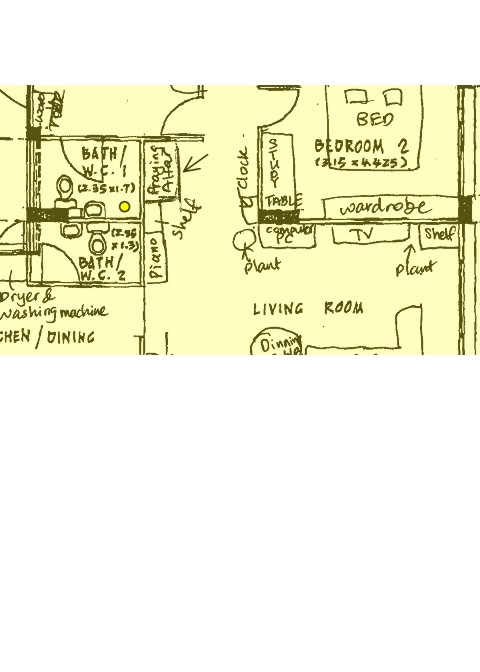 BED
BEDROOM 2
(3.15 x 4.425)
BATH/
W.C. 1
(2.35 x 1.7)
Praying
Altar
Clock
STUDY
TABLE
wardrobe
Shelf
computer
PC
TV
Shelf
Plant
plant
(2.35
x 1.3)
BATH/
W.C. 2
Piano
Dryer &
washing machine
CHEN / DINING
LIVING ROOM
Dinning